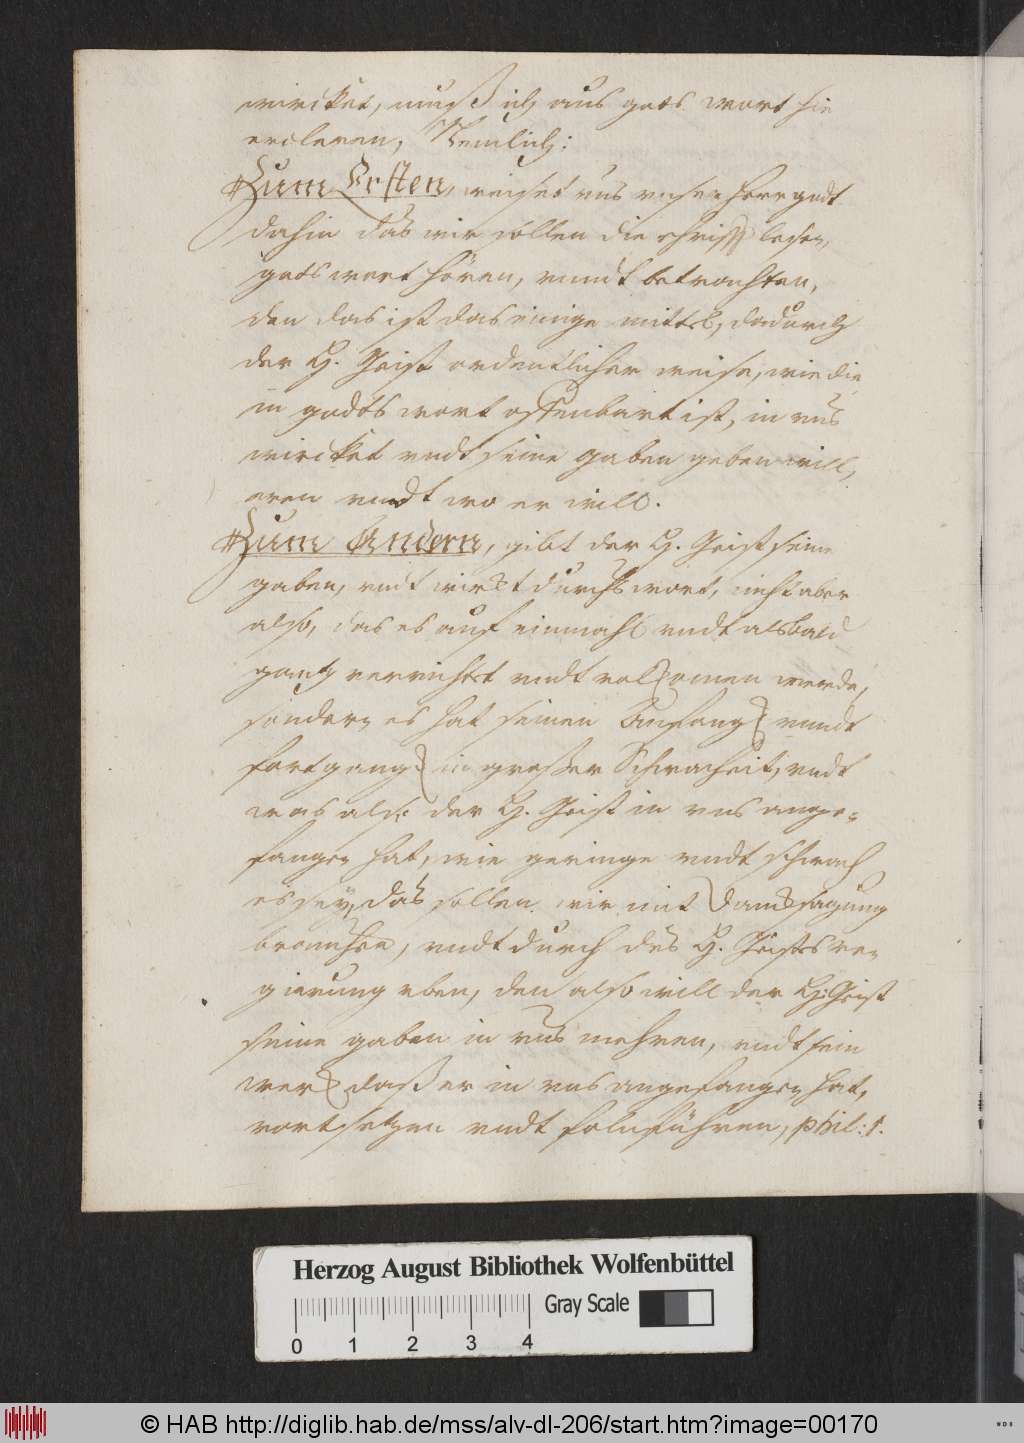 wircket, muß ich aus gots wort hie
ercleren, Nemlich:
Zum Ersten, weiset uns unser herr gudt
dahin das wir sollen die schrifft lesen,
gots wort hören, unndt betrachten,
den das ist das einige mittel, dadurch
der H. Geist ordentlicher weise, wie die
in godts wort offenbart ist, in uns
wircket undt seine gaben geben will,
wen unndt wo er will.
Zum Andern, gibt der H. Geist seine
gaben, undt wirkt durchs wort, nicht aber
also, das es auf einmahl undt alsbald
gantz verrichtet undt volkomen werde,
sondern es hat seinen Anfang unndt
fortgang in großer Schwacheit, undt
was also der H. Geist in uns ange-
fangen hat, wie geringe undt schwach
es sey, das sollen wir mit Danksagung
brauchen, undt durch des H. Geistes re-
gierung üben, den also will der H. Geist
seine gaben in uns mehren, undt sein
werk daß er in uns angefangen hat,
vortsetzen undt folnführen, phil: 1.
Herzog August Bibliothek Wolfenbüttel
Gray Scale
0 1 2 3 4
© HAB http://diglib.hab.de/mss/alv-dl-206/start.htm?image=00170